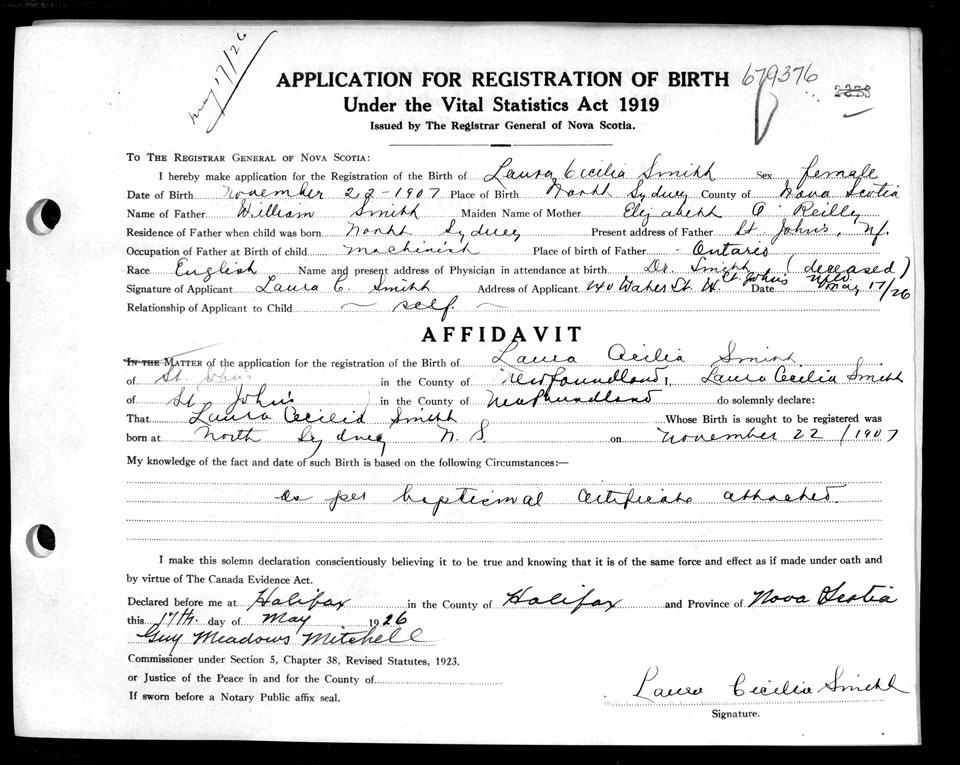 May 17/26
APPLICATION FOR REGISTRATION OF BIRTH 679376
Under the Vital Statistics Act 1919
Issued by The Registrar General of Nova Scotia.
TO THE REGISTRAR GENERAL OF NOVA SCOTIA:
I hereby make application for the Registration of the Birth of Laura Cecilia Smith Sex female
Date of Birth November 22-1907 Place of Birth North Sydney County of Nova Scotia
Name of Father William Smith Maiden Name of Mother Elizabeth O'Reilly
Residence of Father when child was born North Sydney Present address of Father St. John's, Nf.
Occupation of Father at Birth of child machinist Place of birth of Father - Ontario
Race English Name and present address of Physician in attendance at birth Dr. Smith (deceased)
Signature of Applicant Laura C. Smith Address of Applicant 240 Water St. W. St John's Nfld Date May 17/26
Relationship of Applicant to Child — self —
AFFIDAVIT
IN THE MATTER of the application for the registration of the Birth of Laura Cecilia Smith
of St. John's in the County of Newfoundland I, Laura Cecilia Smith
of St John's in the County of Newfoundland do solemnly declare:
That Laura Cecilia Smith Whose Birth is sought to be registered was
born at North Sydney N. S. on November 22/1907
My knowledge of the fact and date of such Birth is based on the following Circumstances:—
as per baptismal certificate attached.
I make this solemn declaration conscientiously believing it to be true and knowing that it is of the same force and effect as if made under oath and
by virtue of The Canada Evidence Act.
Declared before me at Halifax in the County of Halifax and Province of Nova Scotia
this 17th. day of May 1926
Guy Meadows Mitchell
Commissioner under Section 5, Chapter 38, Revised Statutes, 1923.
or Justice of the Peace in and for the County of
If sworn before a Notary Public affix seal.
Laura Cecilia Smith
Signature.